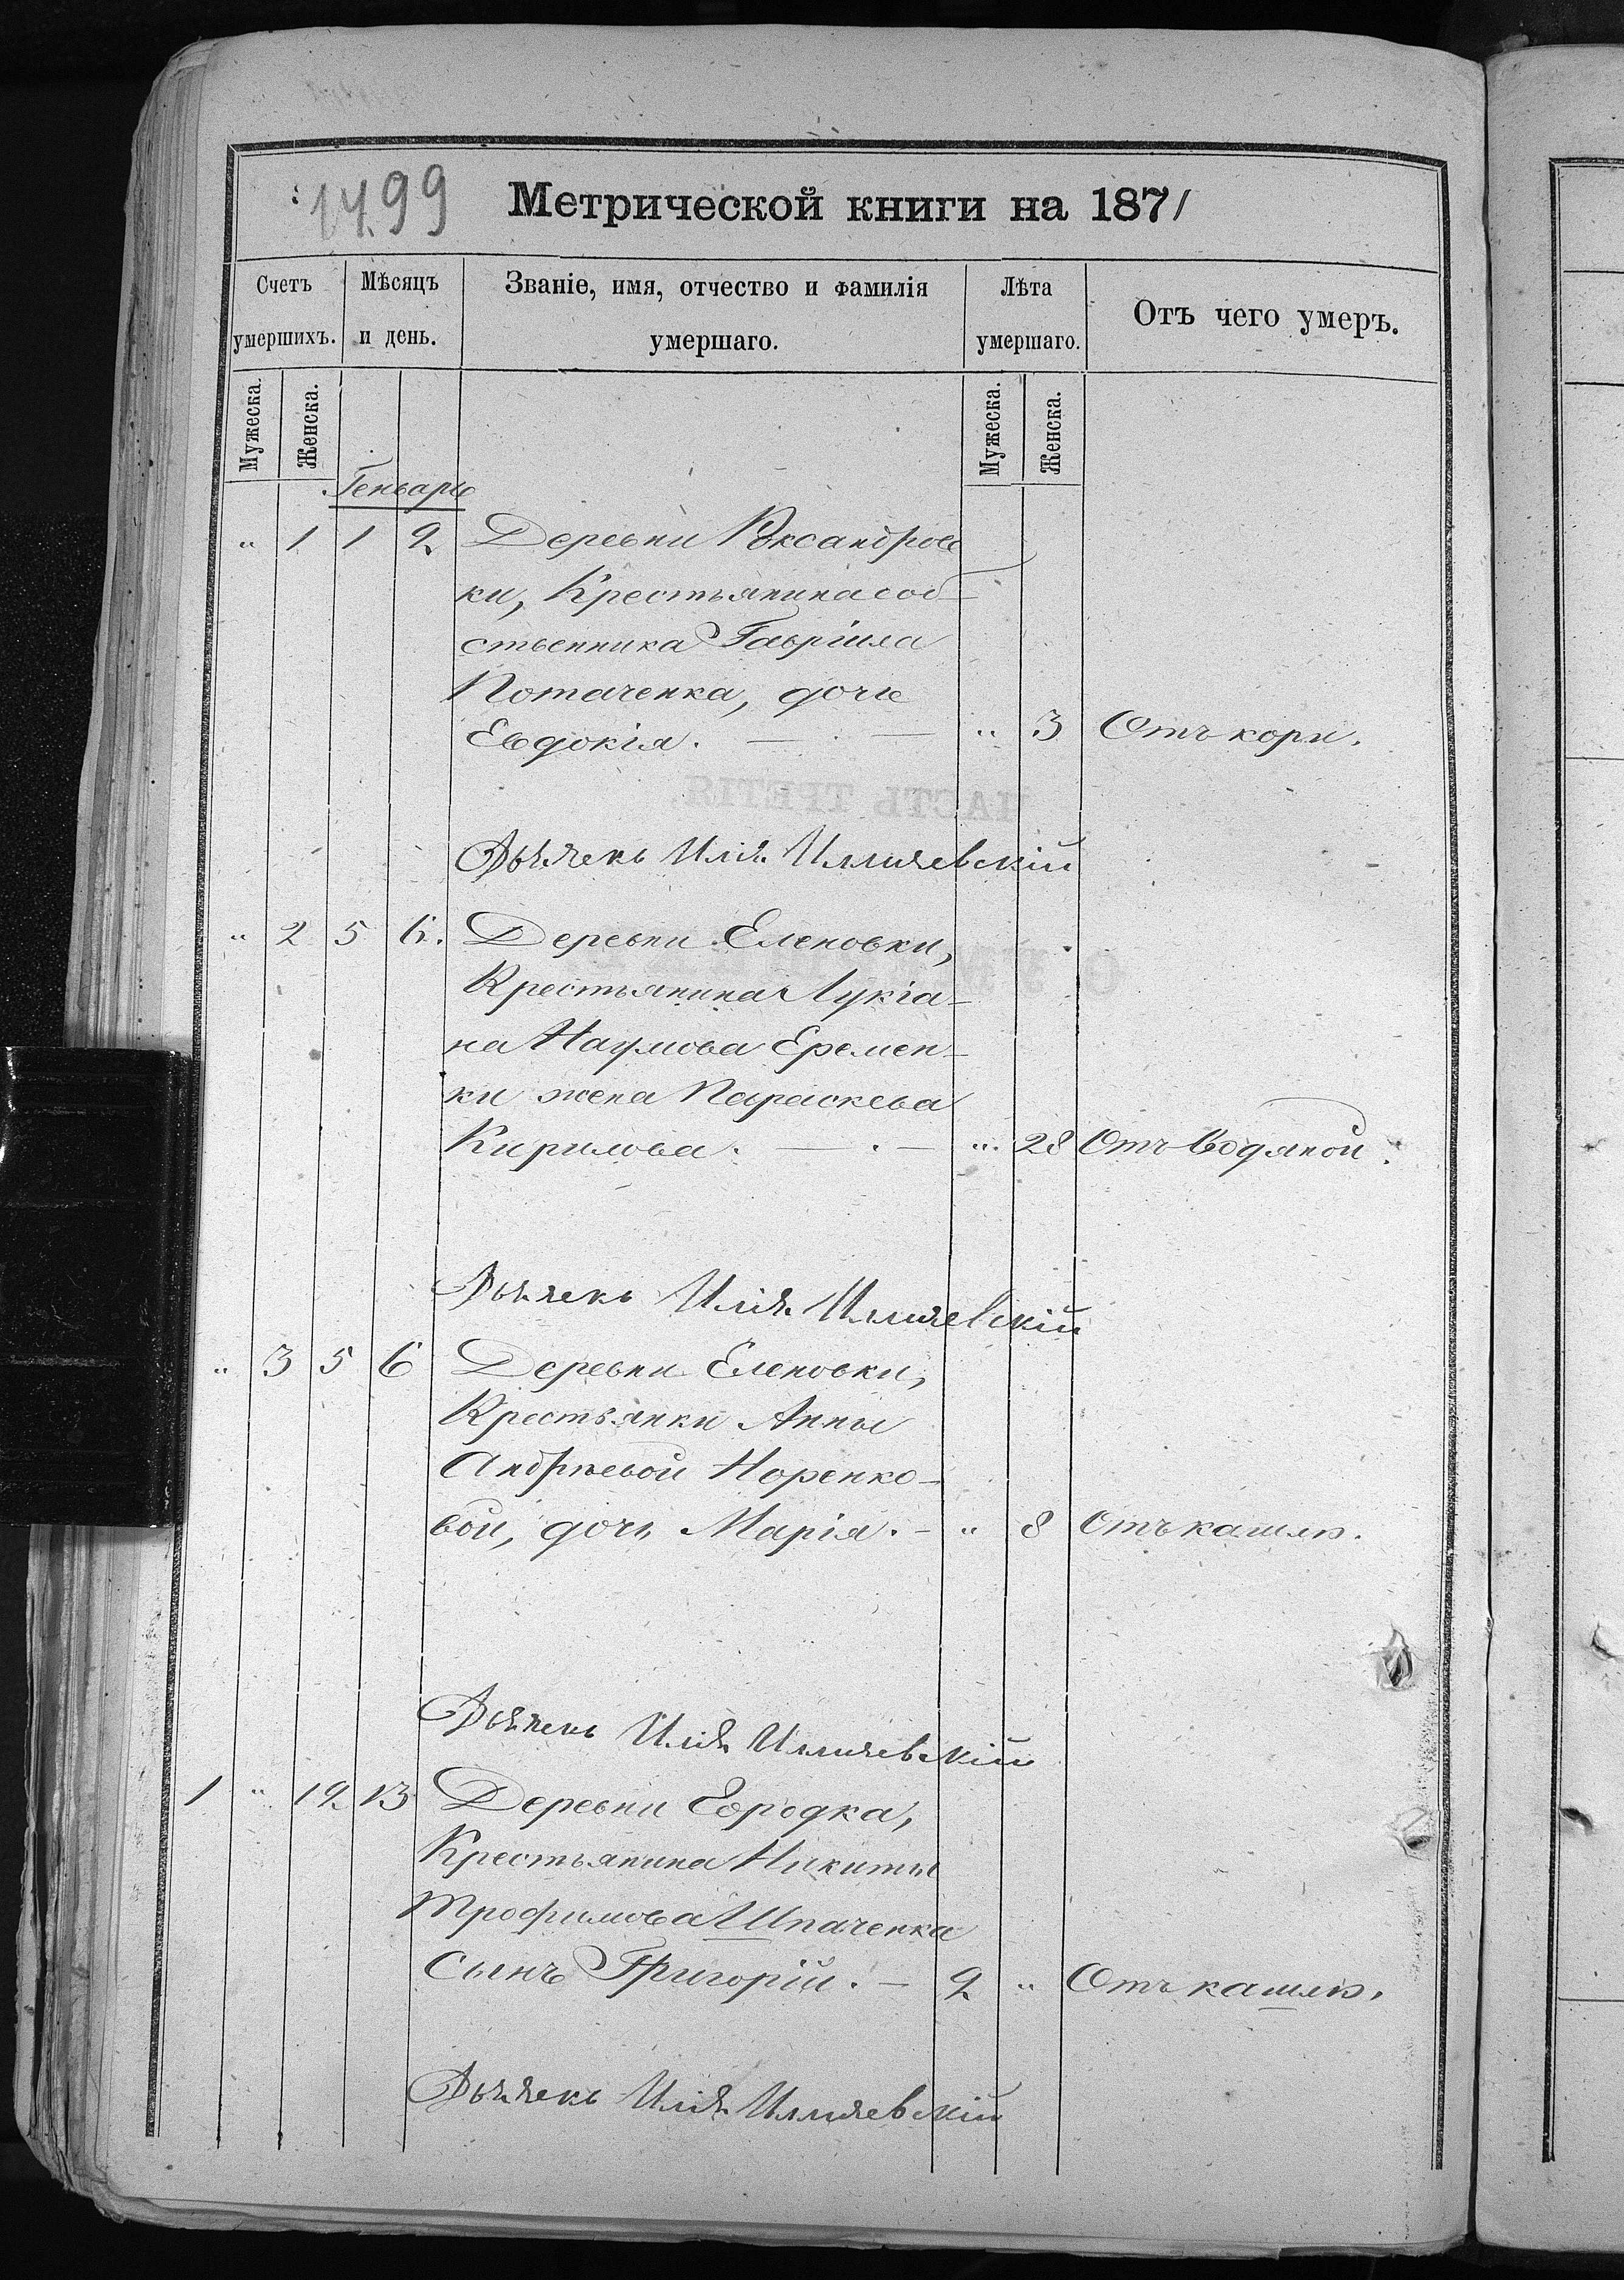 1499
Метрической книги на 1871
Счетъ умершихъ.
Мѣсяцъ и день.
Званіе, имя, отчество и фамилія умершаго.
Лѣта умершаго.
Отъ чего умеръ.
Мужеска.
Женска.
Мужеска.
Женска.
Генварь
„ 1 1 2 Деревни Роксандров
ки, Крестьянина соб
ственника Гавріила
Потаченка, дочь
Евдокія. — „ 3 Отъ кори.
Дьячекъ Илія Илляшевскій
„ 2 5 6. Деревни Еленовки,
Крестьянина Лукіа-
на Наумова Еремен-
ки жена Параскева
Кирилова. — „ 28 Отъ водяной.
Дьячекъ Илія Илляшевскій
„ 3 5 6 Деревни Еленовки,
Крестьянки Анны
Андреевой Норенко-
вой, дочь Марія. — „ 8 Отъ кашля.
Дьячекъ Илія Илляшевскій
1 „ 12 13 Деревни Городка,
Крестьянина Никиты
Трофимова Шпаченка
Сынъ Григорій. — 2 „ Отъ кашля.
Дьячекъ Илія Илляшевскій